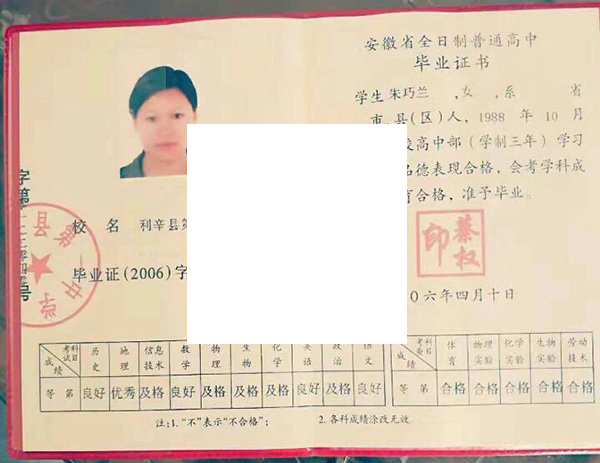 安徽省全日制普通高中
毕业证书
学生 朱巧兰 ,女 ,系 省
市 县(区)人, 1988 年 10 月
校高中部(学制三年)学习
品德表现合格,会考学科成
育合格,准予毕业。
校 名 利辛县第
毕业证(2006)字
蔡权
印
○六年四月十日
考试科目 历史 地理 信息技术 数学 物理 生物 化学 英语 政治 语文
成绩
等第 良好 优秀 及格 良好 及格 及格 及格 良好 及格 良好
考查科目 体育 物理实验 化学实验 生物实验 劳动技术
成绩
等第 合格 合格 合格 合格 合格
注:1.“不”表示“不合格”; 2.各科成绩涂改无效。